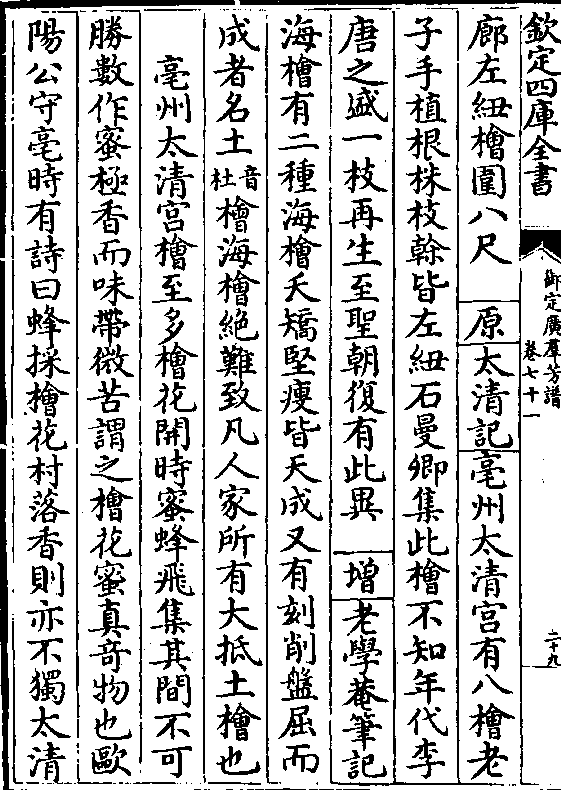 欽定四庫全書
御定廣羣芳譜
卷七十一
二十九
廊左紐檜圍八尺 原 太清記 亳州太清宫有八檜老
子手植根株枝榦皆左紐石曼卿集此檜不知年代李
唐之盛一枝再生至聖朝復有此異 增 老學菴筆記
海檜有二種海檜夭矯堅瘦皆天成又有刻削盤屈而
成者名土音杜檜海檜絶難致凡人家所有大抵土檜也
亳州太清宫檜至多檜花開時蜜蜂飛集其間不可
勝數作蜜極香而味帶微苦謂之檜花蜜真奇物也歐
陽公守亳時有詩曰蜂採檜花村落香則亦不獨太清